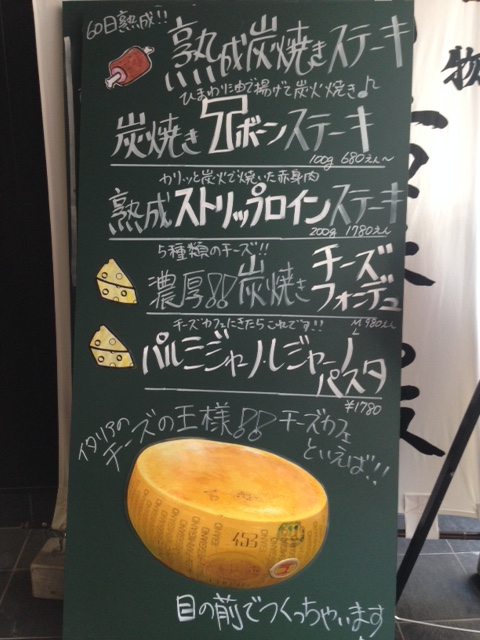 60日熟成!!
熟成炭焼きステーキ
ひまわり油で揚げて炭火焼き♪
炭焼きTボーンステーキ
100g 680えん〜
カリッと炭火で焼いた赤身肉
熟成ストリップロインステーキ
200g 1780えん
5種類のチーズ!!
濃厚!!炭焼きチーズ
フォンデュ
M 980えん
L
チーズカフェにきたらこれです!!
パルミジャーノレジャーノ
パスタ
¥1780
イタリアの
チーズの王様!!チーズカフェ
といえば!!
453
目の前でつくっちゃいます
物